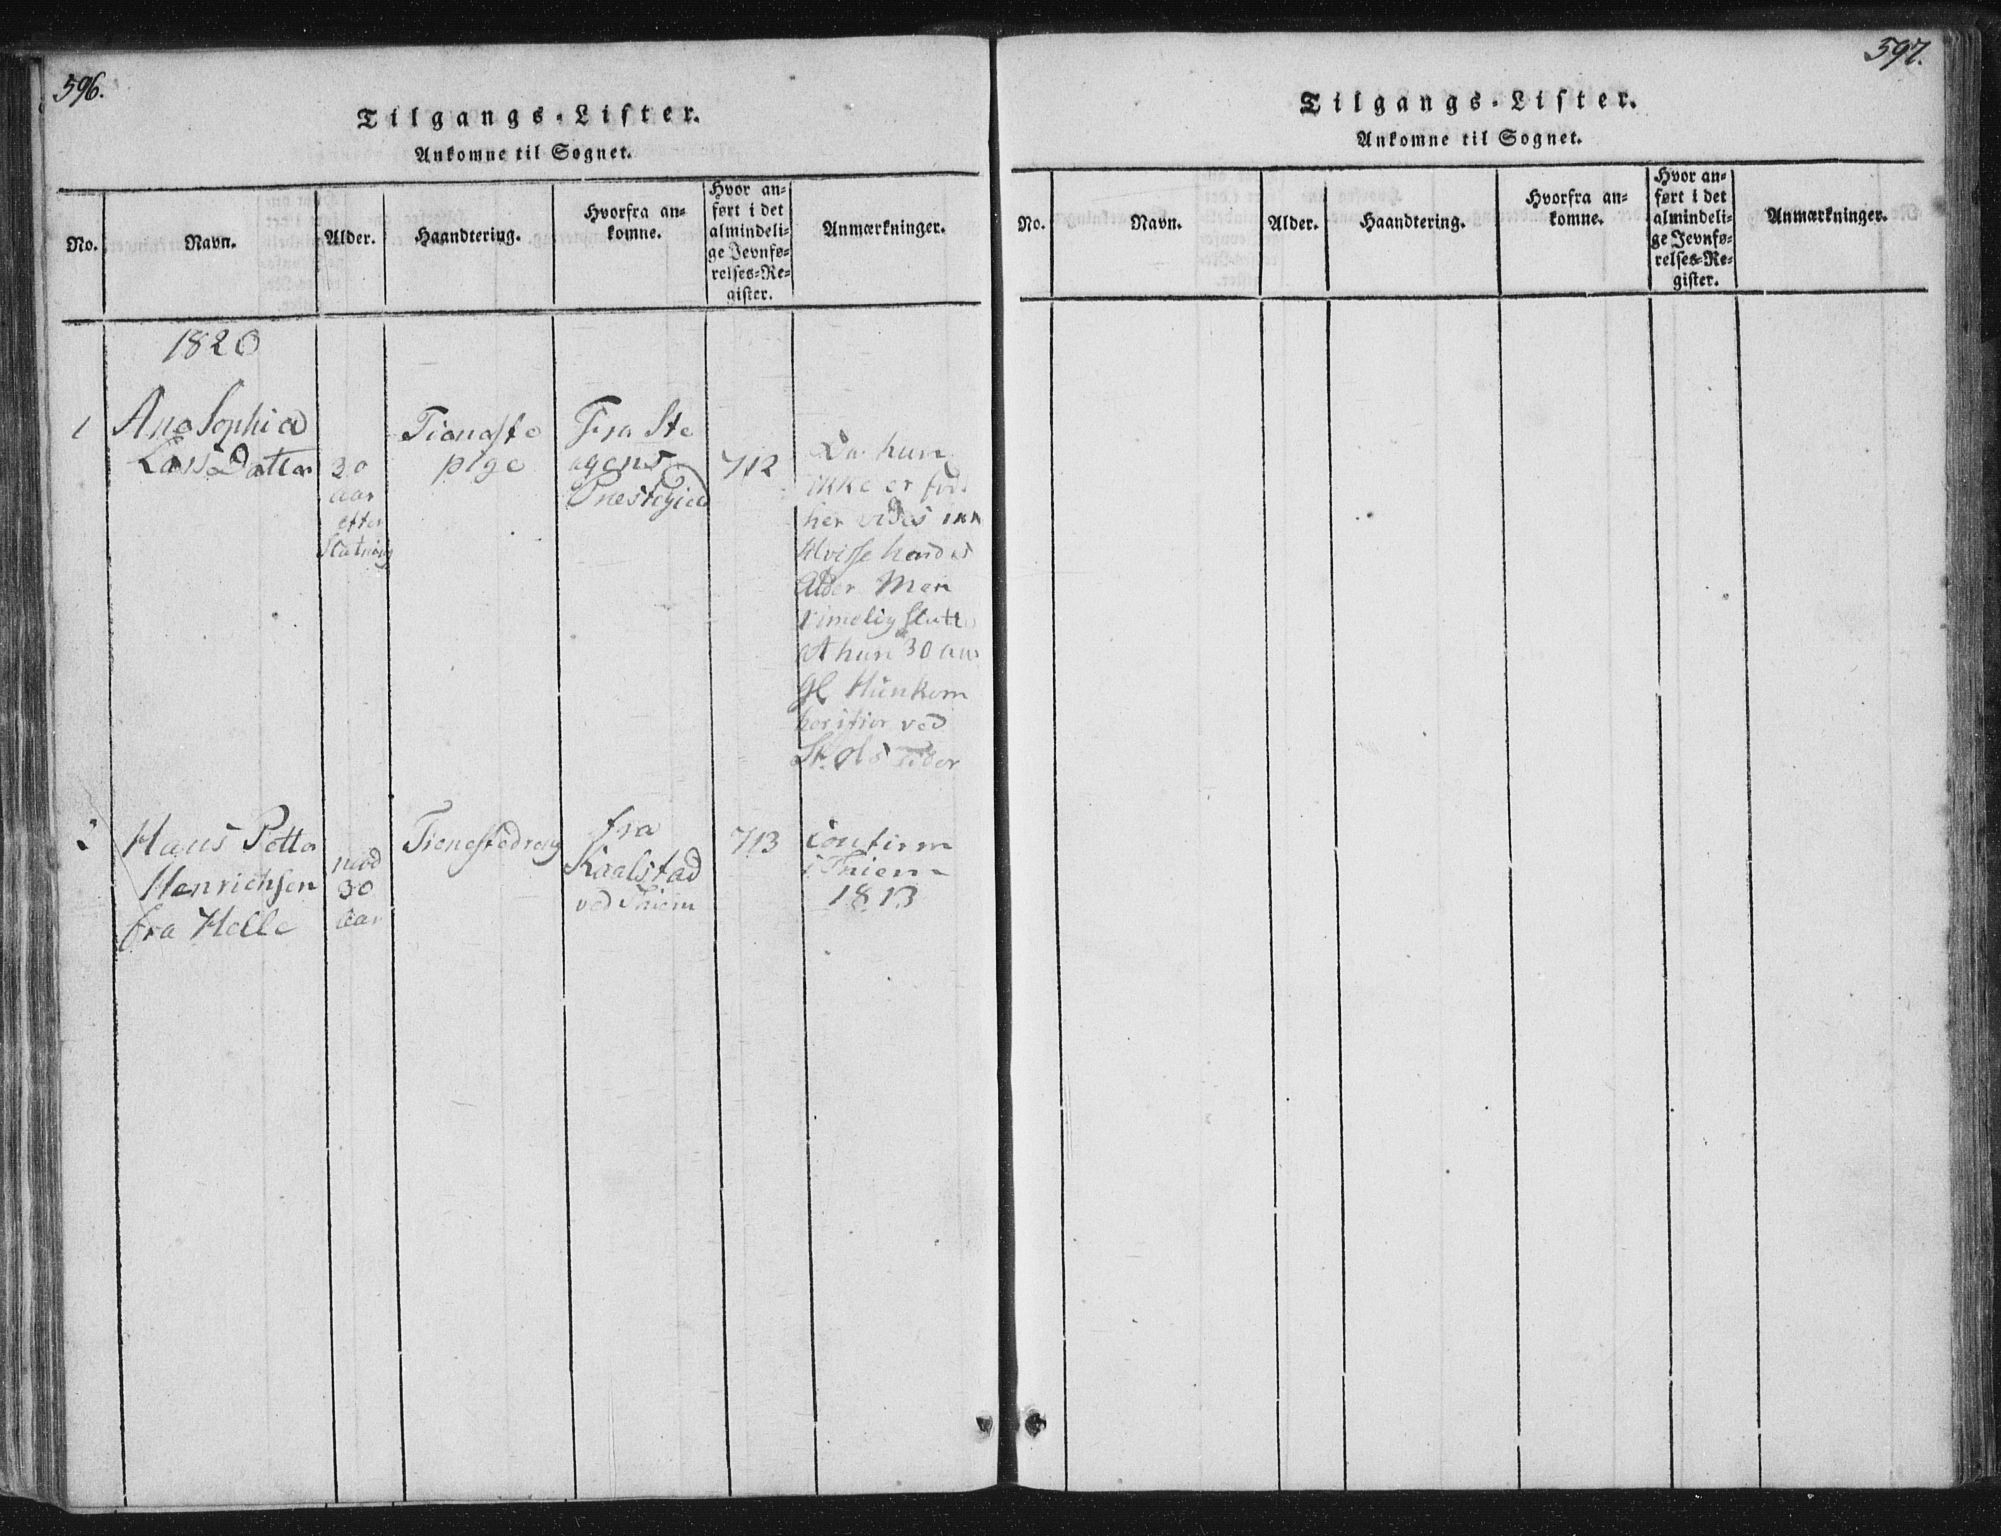 596.
Tilgangs-Lister.
Ankomne til Sognet.
No.
Navn.
Alder.
Haandtering.
Hvorfra an=
komne.
Hvor an=
ført i det
almindeli=
ge Jevnfø=
relses=Re=
gister.
Anmærkninger.
1820
1
Ana Sophia
Lars Datter
30
aar
efter
Slutning
Tieneste
pige
Fra Ste
agens
Præstegield
712
Da hun
ikke er fød
her vides ikk
tilvisse hendes
Alder Men
rimelig slutte
at hun 30 aar
gl Hun kom
her ifior ved
St. Ols Tider
2
Hans Petter
Henrichsen
fra Helle
mod
30
Aar
Tienestedreng
fra
Kaalstad
ved Skiem
713
Confirm
i Skiem
1813
597.
Tilgangs-Lister.
Ankomne til Sognet.
No.
Navn.
Alder.
Haandtering.
Hvorfra an=
komne.
Hvor an=
ført i det
almindeli=
ge Jevnfø=
relses=Re=
gister.
Anmærkninger.